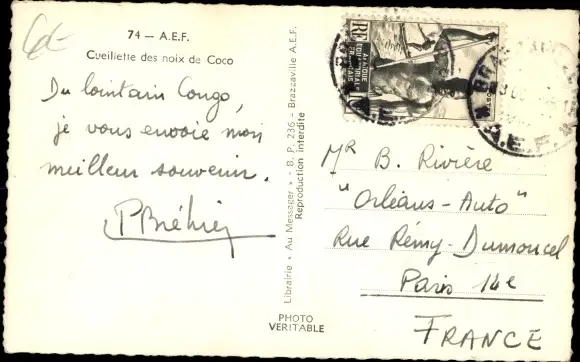 74 — A.E.F.
Cueillette des noix de Coco
Du lointain Congo,
je vous envoie mon
meilleur souvenir.
P Bréhier
Librairie « Au Messager » - B. P. 236 - Brazzaville A.E.F.
Reproduction interdite
PHOTO
VERITABLE
AFRIQUE
EQUATORIALE
FRANÇAISE
A.E.F.
Mr B. Rivière
"Orléans-Auto"
Rue Rémy-Dumoncel
Paris 14e
FRANCE